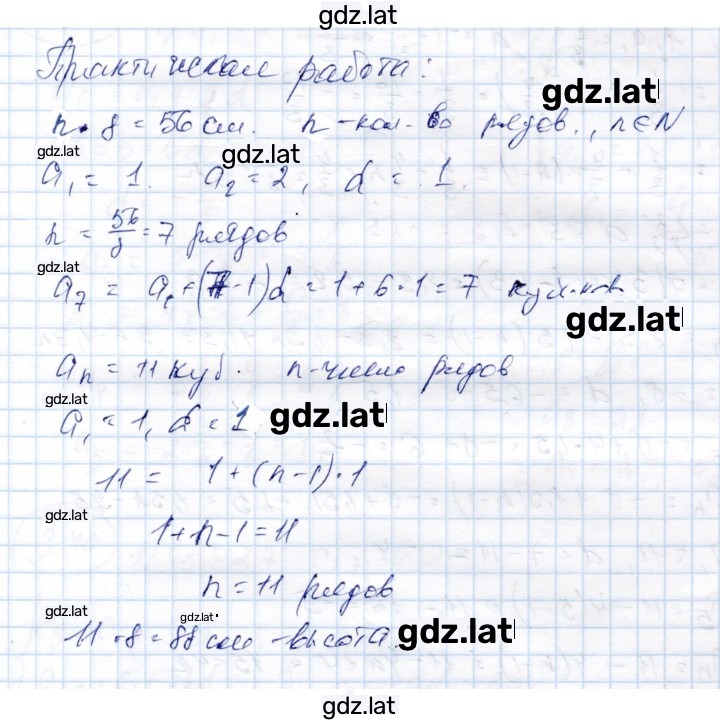 gdz.lat
Практическая работа:
gdz.lat
n · 8 = 56 см. n - кол-во рядов., n ∈ N
gdz.lat
gdz.lat
a₁ = 1. a₂ = 2, d = 1.
n = 56/8 = 7 рядов
gdz.lat
a₇ = a₁ + (7-1)d = 1 + 6 · 1 = 7 кубиков
gdz.lat
aₙ = 11 куб. n - число рядов
gdz.lat
a₁ = 1, d = 1
gdz.lat
11 = 1 + (n-1) · 1
gdz.lat
1 + n - 1 = 11
n = 11 рядов
gdz.lat
gdz.lat
11 · 8 = 88 см - высота.
gdz.lat
gdz.lat